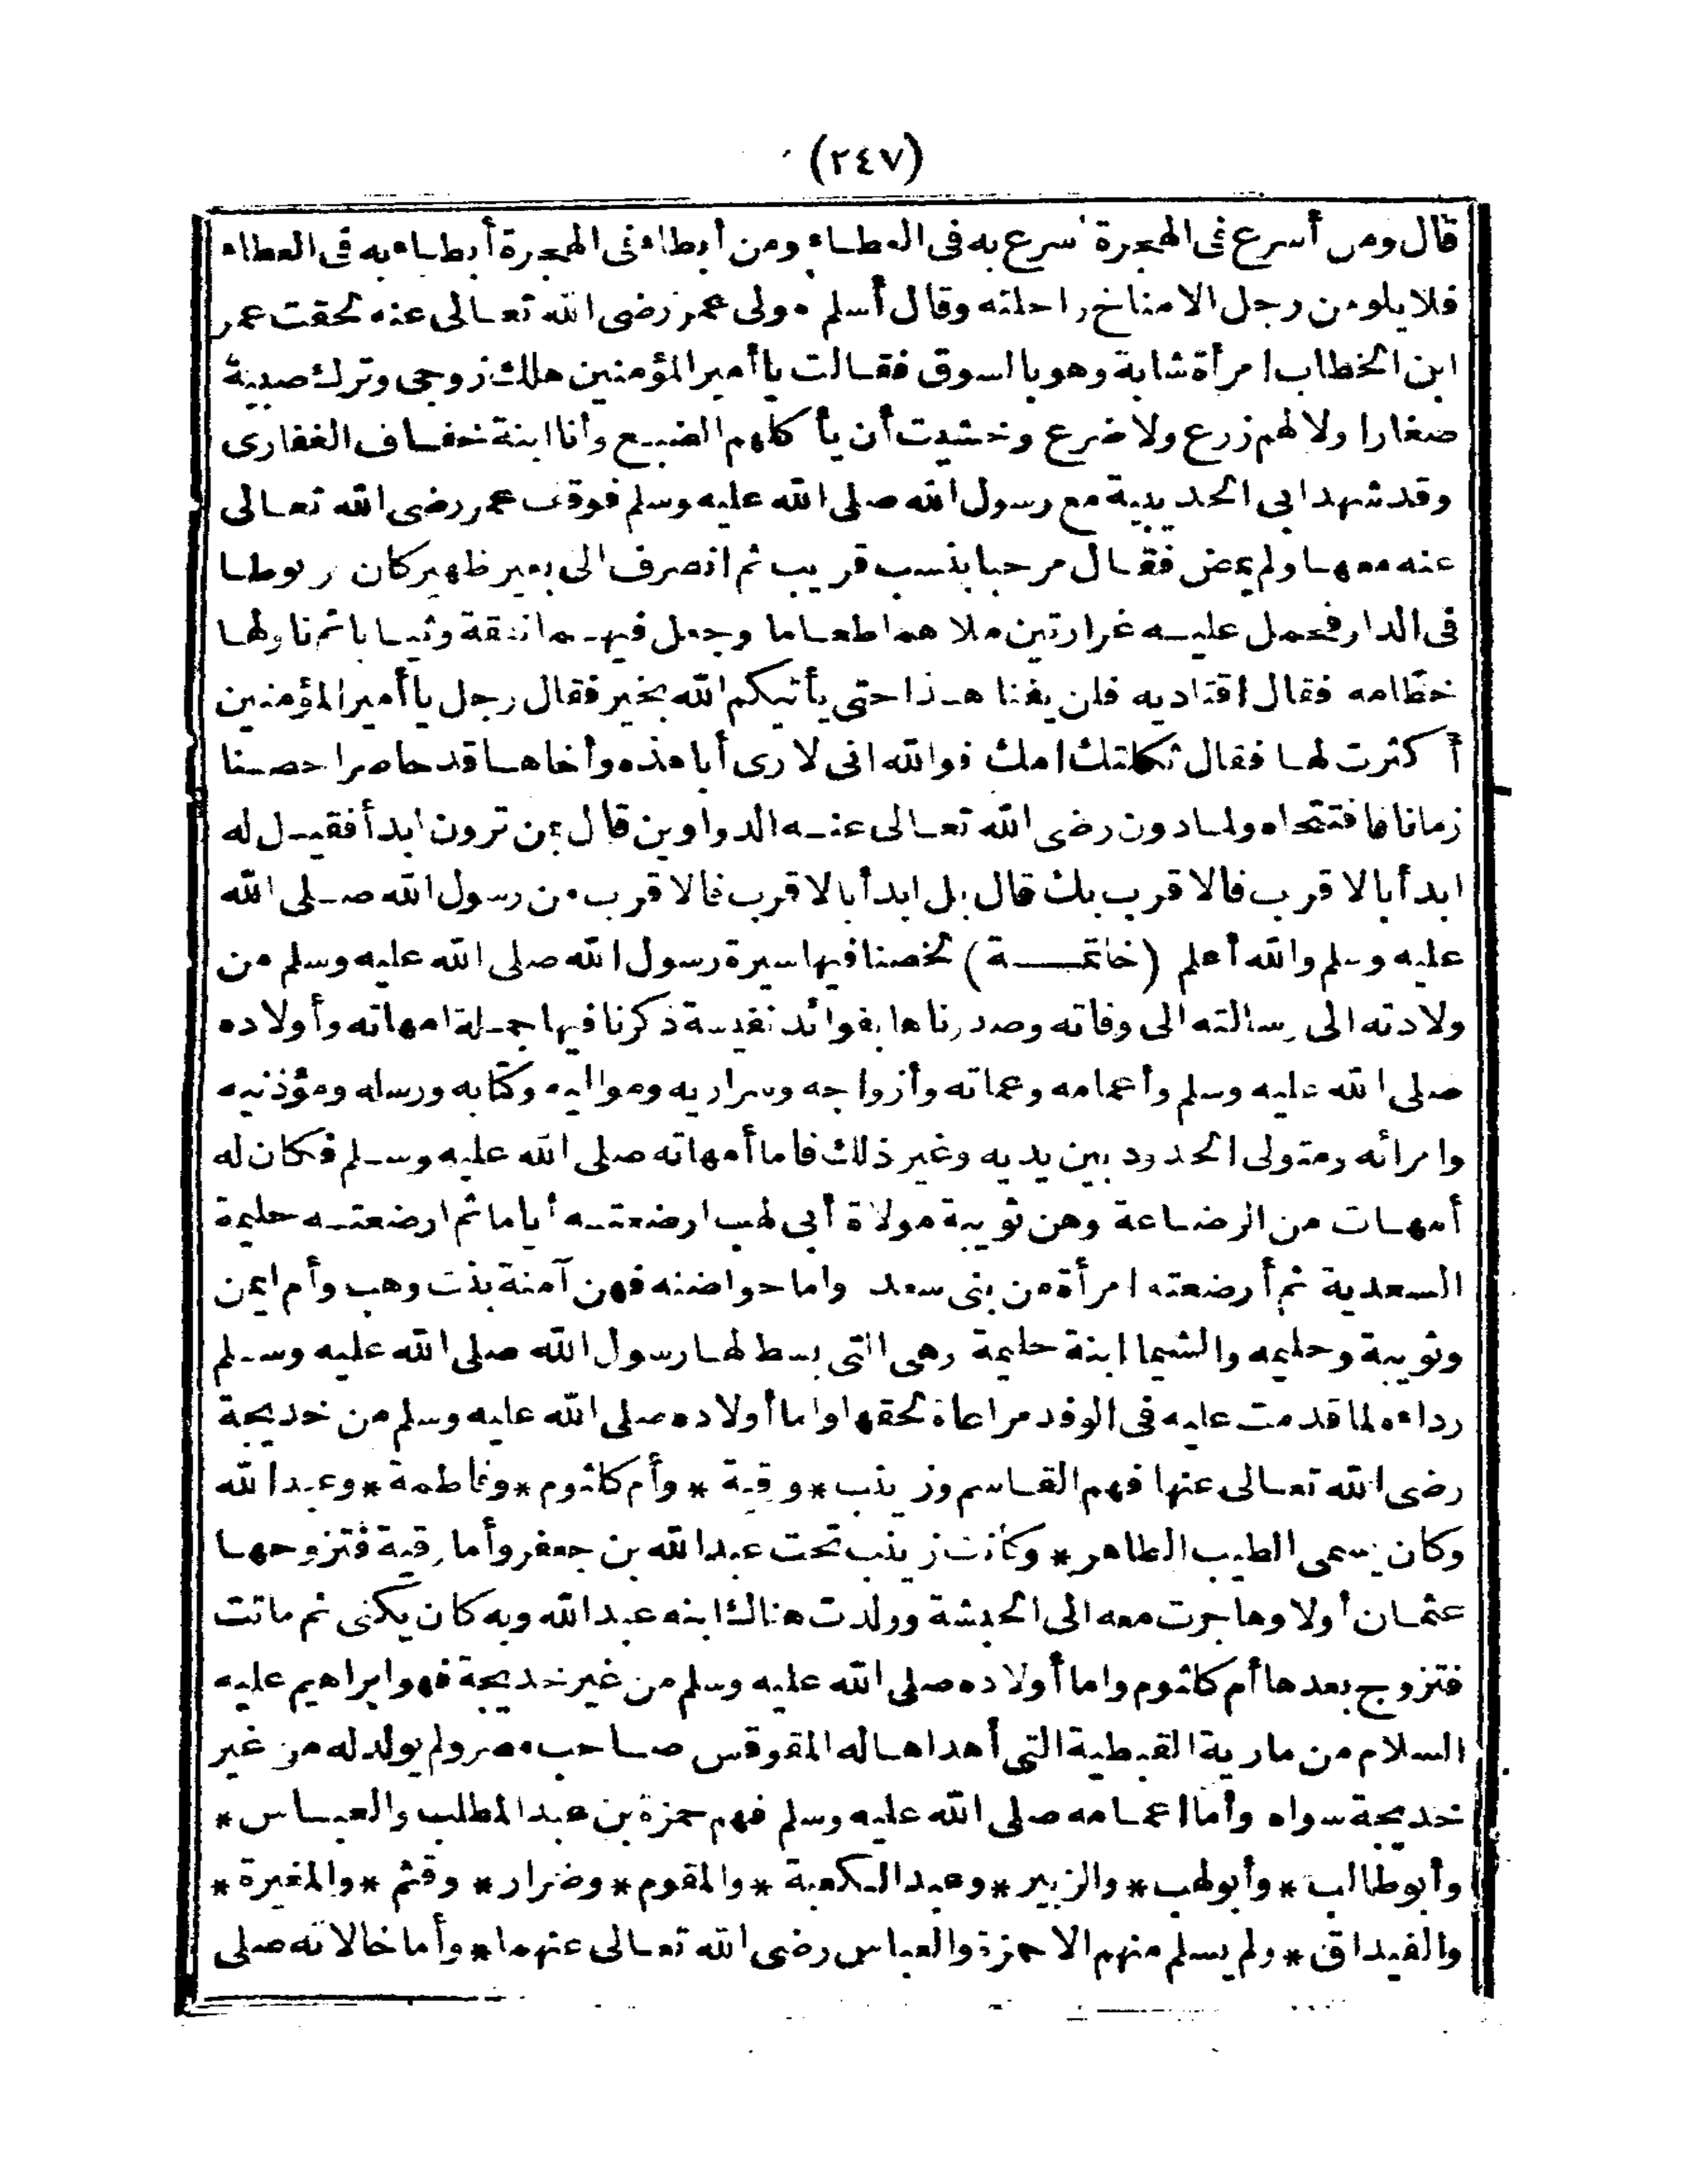 (٢٤٧)
قال ومن أسرع فى الهجرة أسرع به فى العطاء ومن أبطاء فى الهجرة أبطاء به فى العطاء
فلا يلومن رجل الامناخ راحلته وقال أسلم مولى عمر رضى الله تعالى عنه لحقت عمر
ابن الخطاب امرأة شابة وهو بالسوق فقالت يا أمير المؤمنين هلك زوجى وترك صبية
صغارا ولا لهم زرع ولا ضرع وخشيت أن يأكلهم الضبع وأنا ابنة خفاف الغفارى
وقد شهد ابى الحديبية مع رسول الله صلى الله عليه وسلم فوقف عمر رضى الله تعالى
عنه معها ولم يمض فقال مرحبا بنسب قريب ثم انصرف الى بعير ظهير كان ربوطا
فى الدار فحمل عليه غرارتين ملا هما طعاما وجعل فيهما نفقة وثيابا ثم ناولها
خطامه فقال اقتاديه فلن يفنا هذا حتى يأتيكم الله بخير فقال رجل يا أمير المؤمنين
أكثرت لها فقال ثكلتك امك فوالله انى لارى أبا هذه وأخاها قد حاصرا حصنا
زمانا فافتتحاه ولما دون رضى الله تعالى عنه الدواوين قال بمن ترون ابدأ فقيل له
ابدأ بالاقرب فالاقرب بك قال بل ابدأ بالاقرب فالاقرب من رسول الله صلى الله
عليه وسلم والله أعلم (خاتمة) لخصنا فيها سيرة رسول الله صلى الله عليه وسلم من
ولادته الى رسالته الى وفاته وصدرناها بفوائد نفيسة ذكرنا فيها جملة امهاته وأولاده
صلى الله عليه وسلم وأعمامه وعماته وأزواجه وسراريه ومواليه وكتابه ورسله ومؤذنيه
وامرائه ومتولى الحدود بين يديه وغير ذلك فاما أمهاته صلى الله عليه وسلم فكان له
أمهات من الرضاعة وهن ثويبة مولاة أبى لهب ارضعته أياما ثم ارضعته حليمة
السعدية ثم أرضعته امرأة من بنى سعد واما حواضنه فهن آمنة بنت وهب وأم ايمن
وثويبة وحليمه والشيما ابنة حليمة وهى التى بسط لها رسول الله صلى الله عليه وسلم
رداءه لما قدمت عليه فى الوفد مراعاة لحقها واما أولاده صلى الله عليه وسلم من خديجة
رضى الله تعالى عنها فهم القاسم وزينب * ورقية * وأم كلثوم * وفاطمة * وعبد الله
وكان يسمى الطيب الطاهر * وكانت زينب تحت عبد الله بن جعفر وأما رقية فتزوجها
عثمان أولا وهاجرت معه الى الحبشة وولدت هناك ابنه عبد الله وبه كان يكنى ثم ماتت
فتزوج بعدها أم كلثوم واما أولاده صلى الله عليه وسلم من غير خديجة فهو ابراهيم عليه
السلام من مارية القبطية التى أهداها له المقوقس صاحب مصر ولم يولد له من غير
خديجة سواه وأما اعمامه صلى الله عليه وسلم فهم حمزة بن عبد المطلب والعباس *
وأبو طالب * وأبو لهب * والزبير * وعبد الكعبة * والمقوم * وضرار * وقثم * والمغيرة *
والغيداق * ولم يسلم منهم الا حمزة والعباس رضى الله تعالى عنهما * وأما خالاته صلى